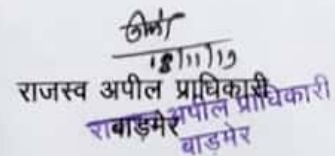 18/11/19
राजस्व अपील प्राधिकारी
बाड़मेर
अपील प्राधिकारी
बाड़मेर